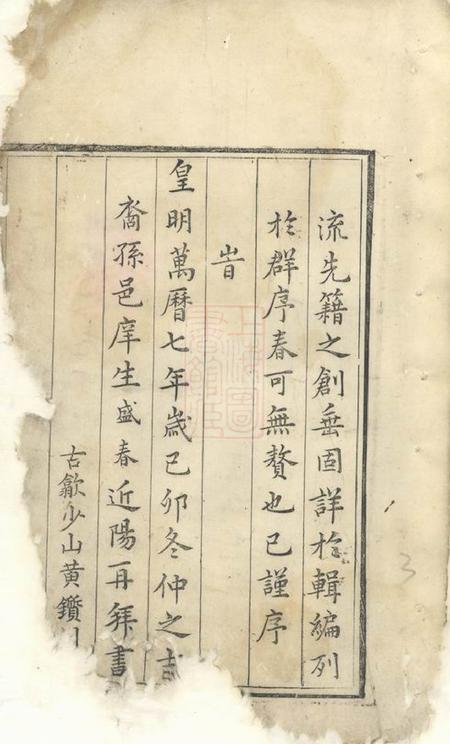 流先籍之創垂固詳於輯編列
於群序春可無贅也已謹序
旹
皇明萬曆七年歲己卯冬仲之吉
裔孫邑庠生盛春近陽再拜書
古歙少山黃鑽
3